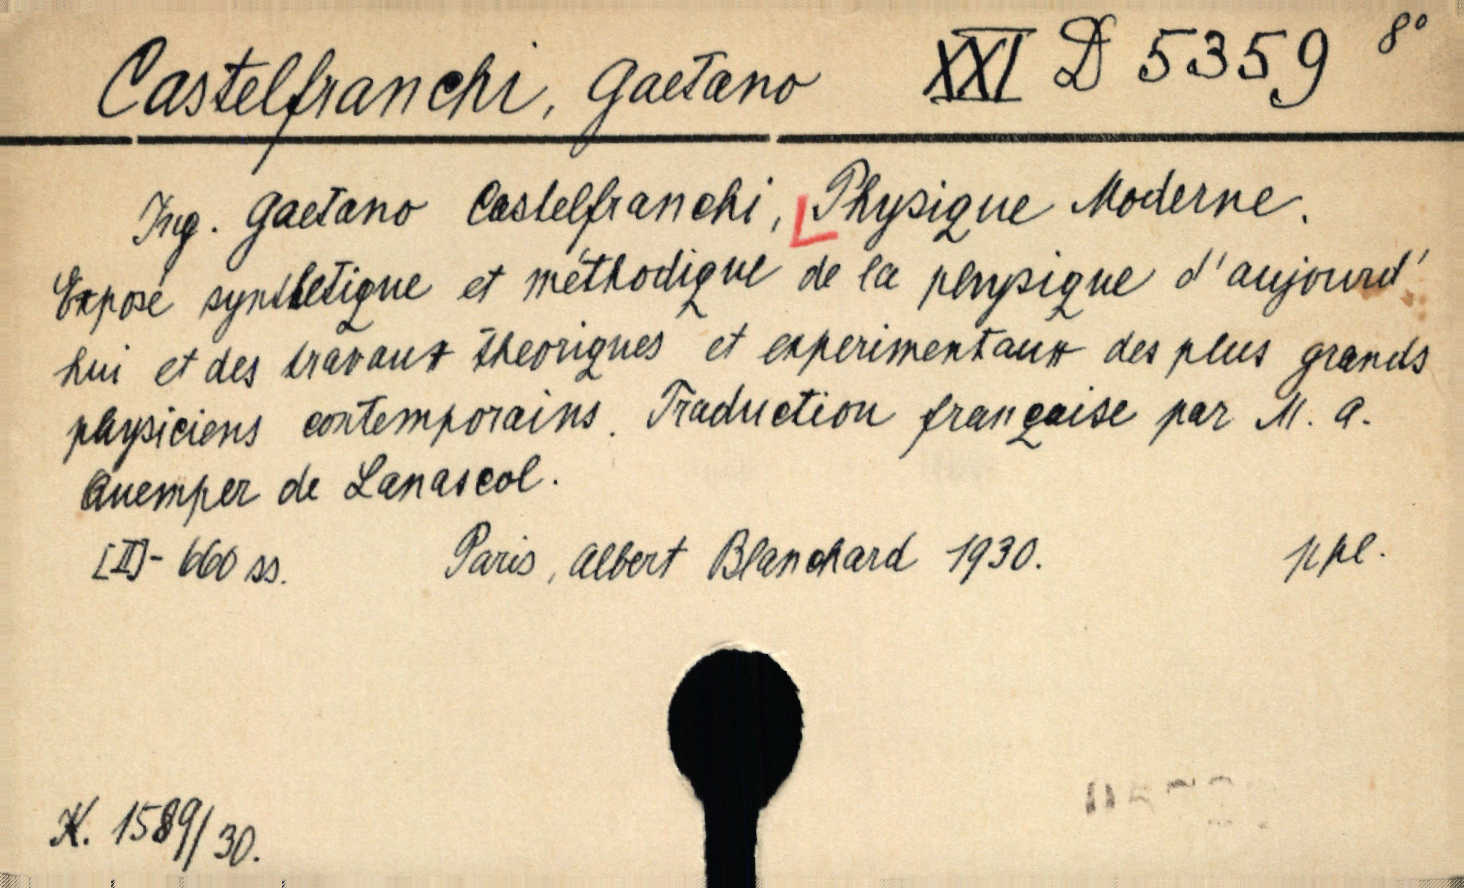 Castelfranchi, Gaetano XXI D 5359 8°
Ing. Gaetano Castelfranchi, Physique Moderne.
Exposé synthetique et méthodique de la physique d'aujourd'
hui et des travaux theoriques et experimentaux des plus grands
physiciens contemporains. Traduction française par M. A.
Quemper de Lanascol.
[II]-660 ss. Paris, Albert Blanchard 1930. ppł.
K. 1589/30.